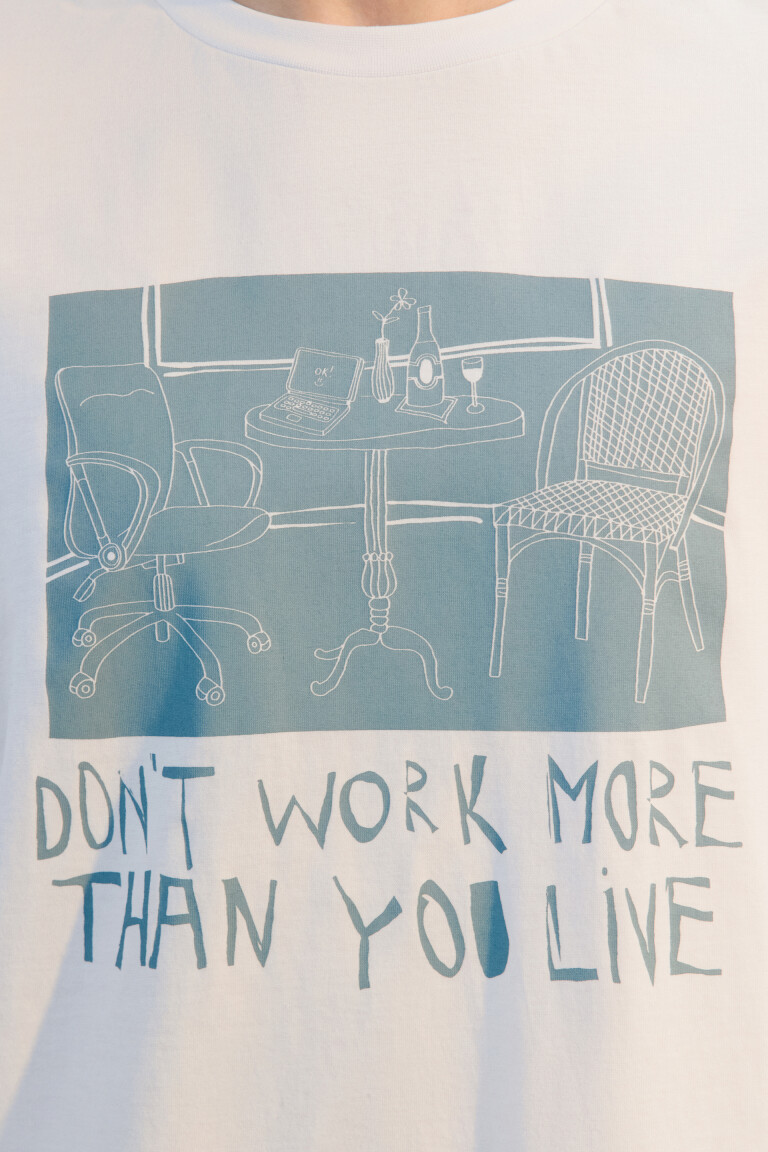 OK!
DON'T WORK MORE
THAN YOU LiVE